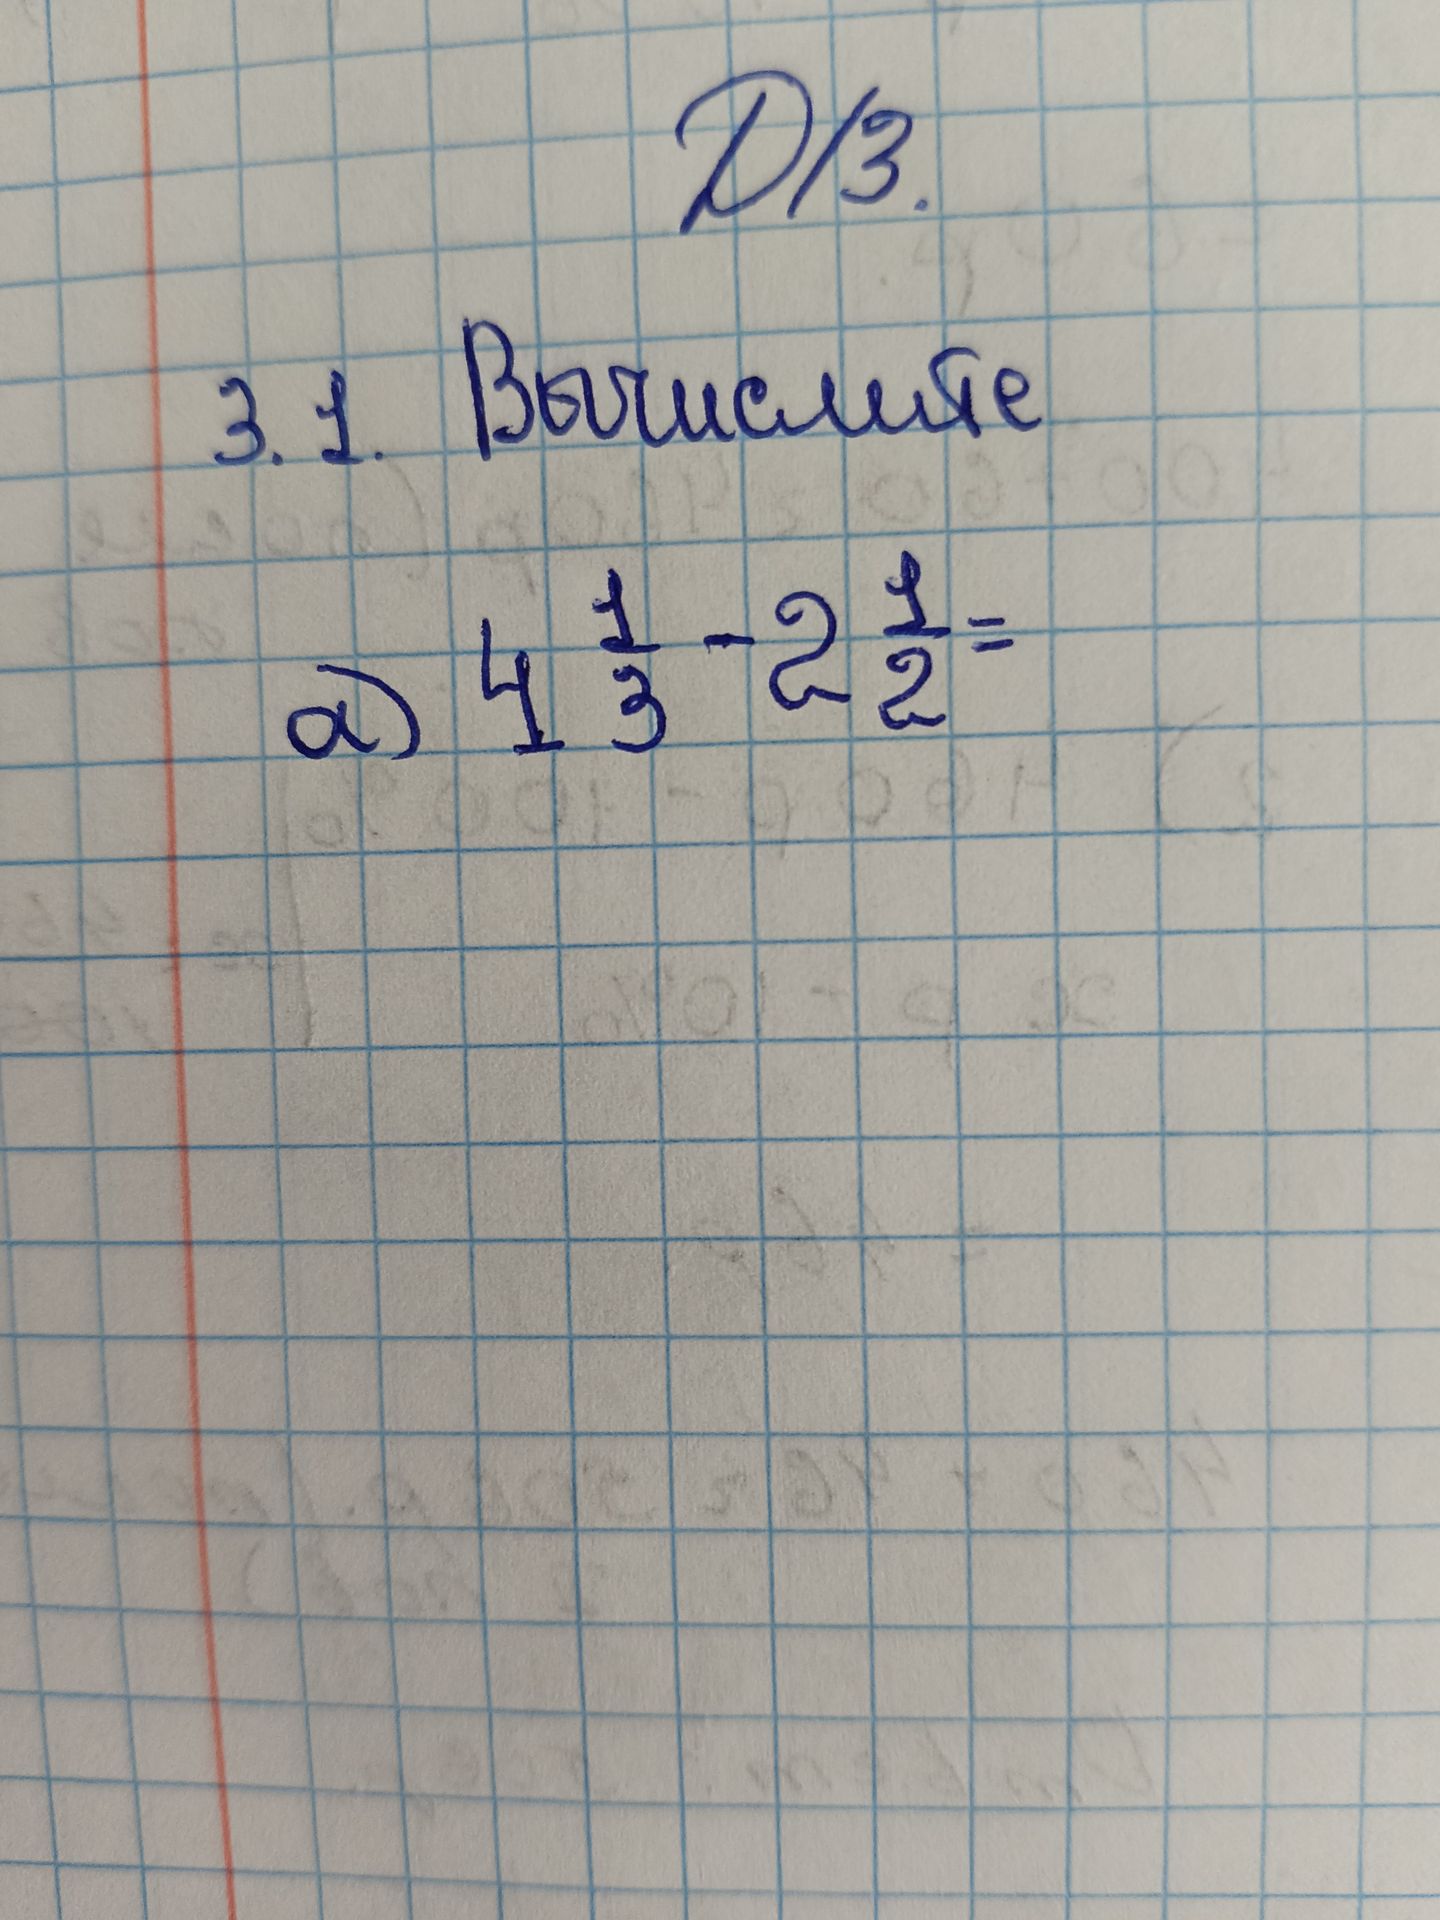 Д/З.
3.1. Вычислите
а) 4 1/3 - 2 1/2 =